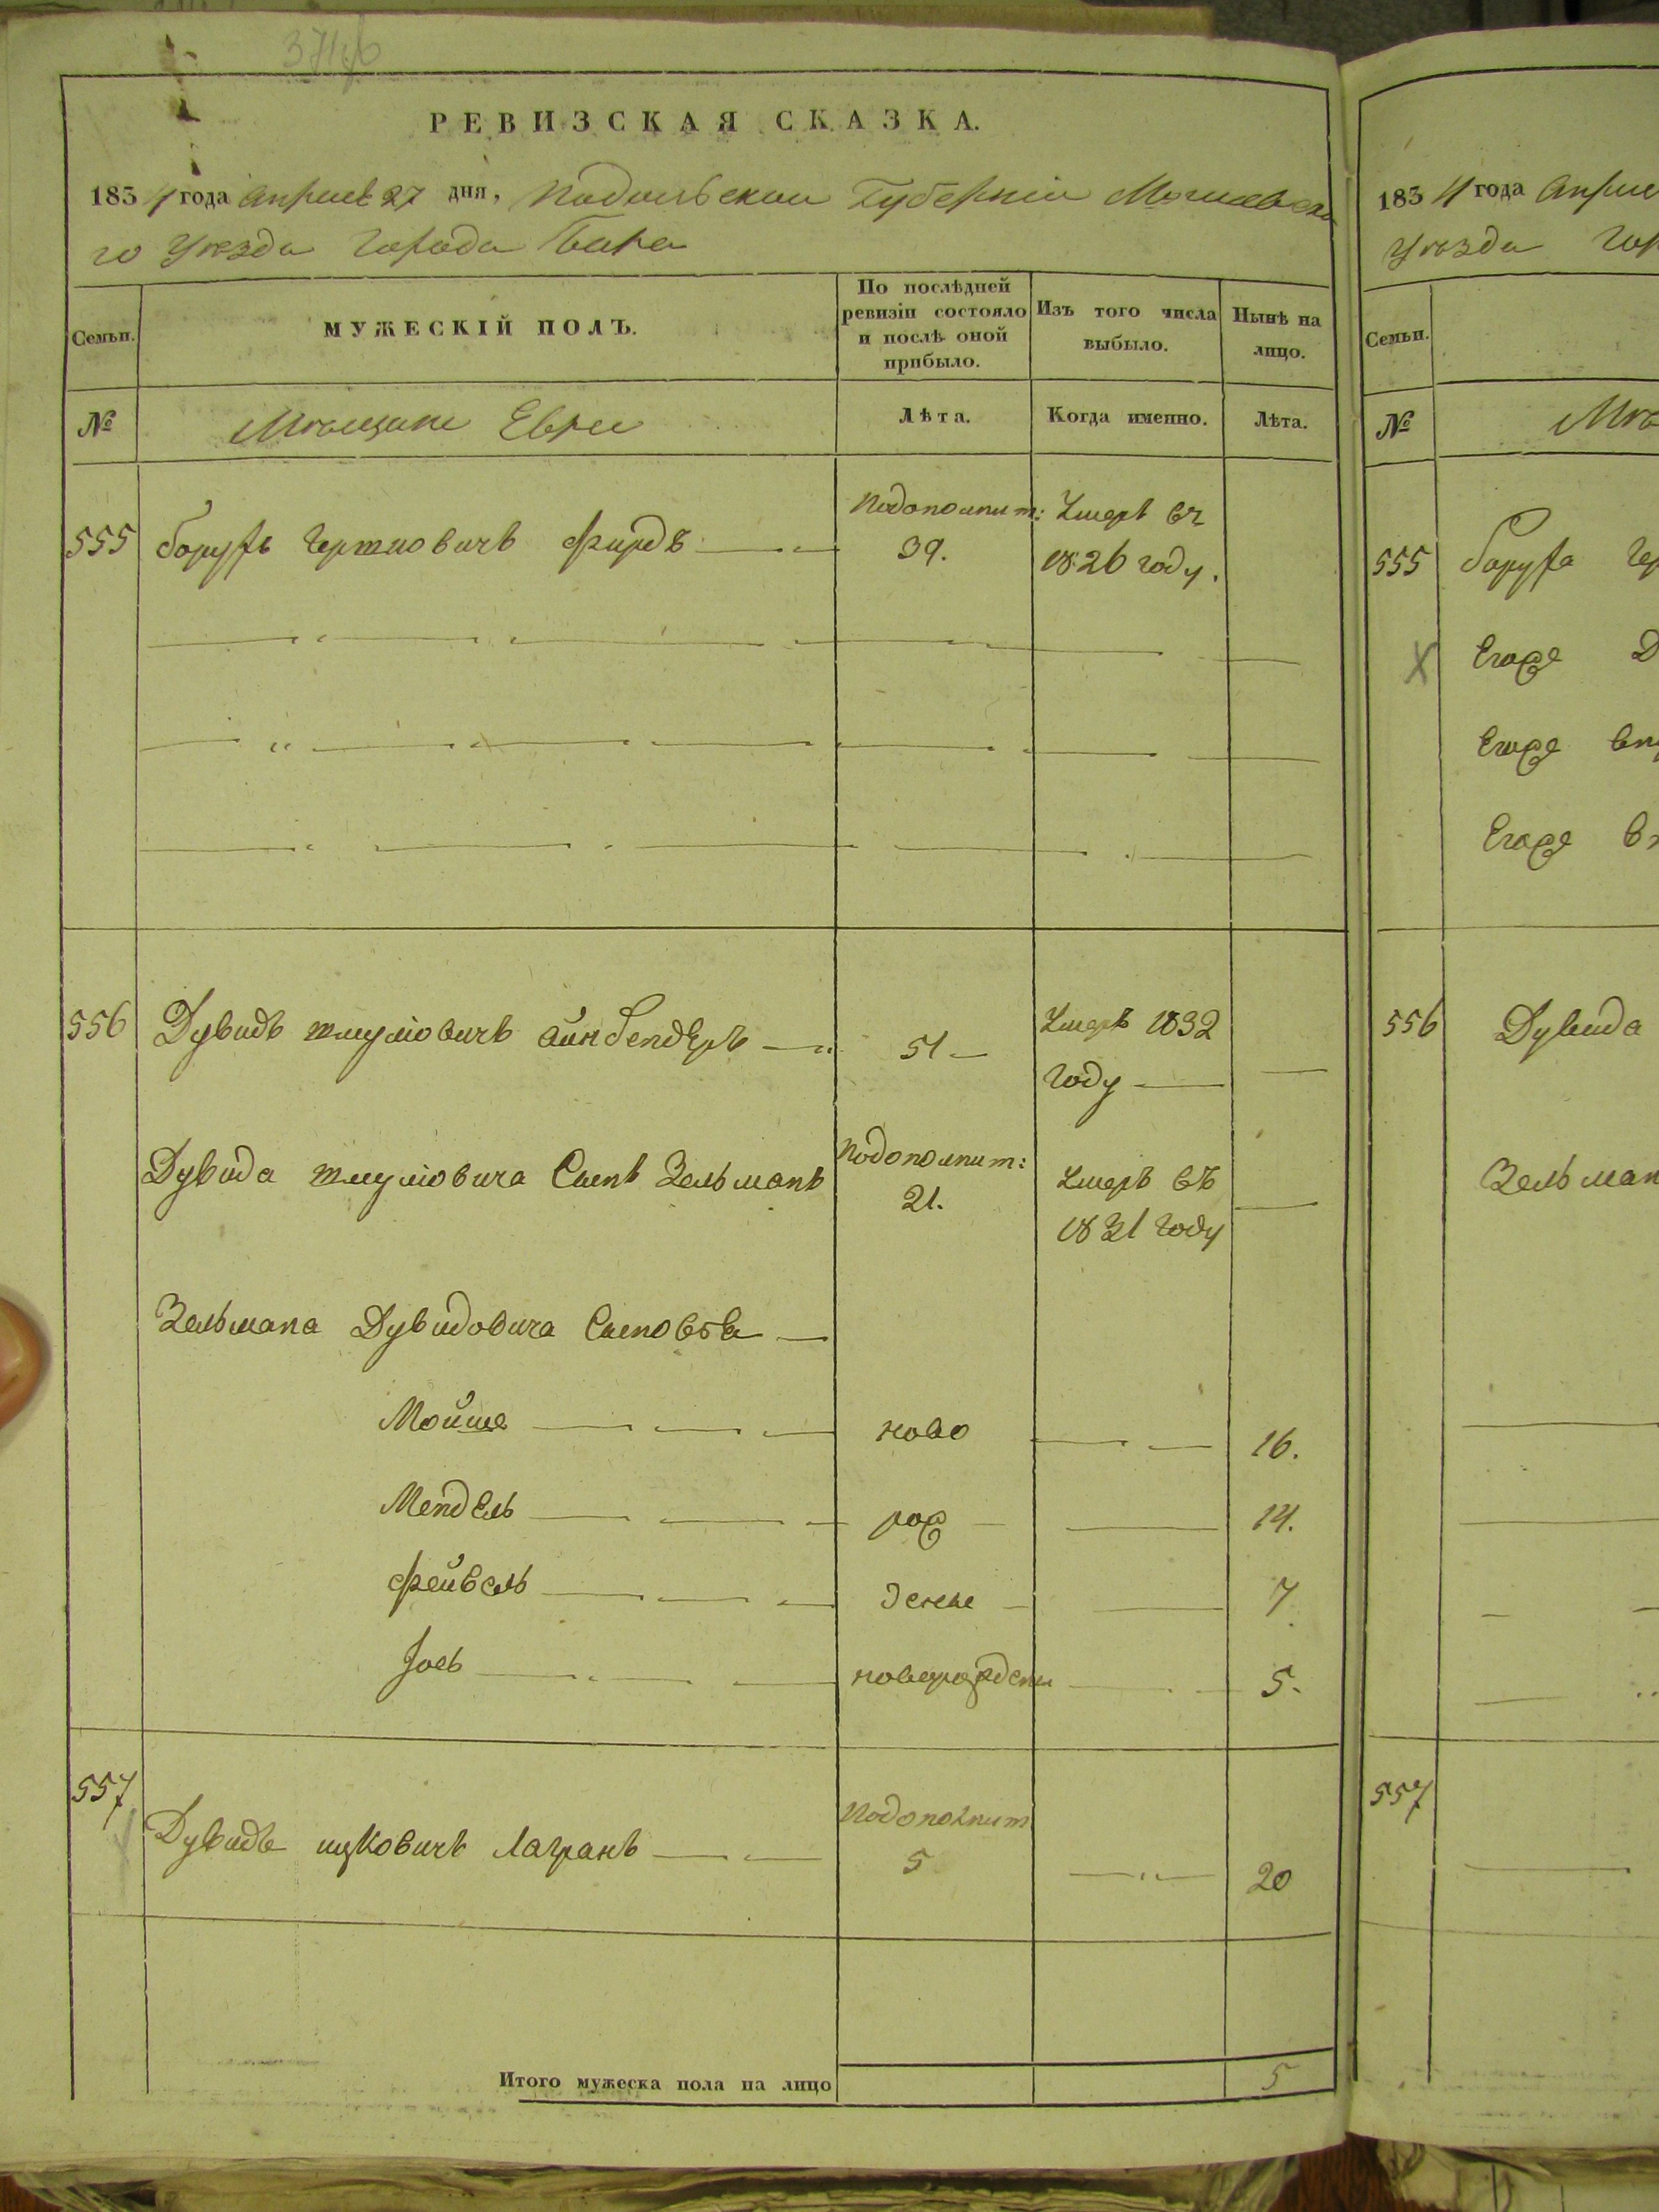 РЕВИЗСКАЯ СКАЗКА.
1834 года Апреля 27 дня, Подольской Губерніи Могилевска
го Уѣзда Города Бара
Семьи.
МУЖЕСКІЙ ПОЛЪ.
По послѣдней
ревизіи состояло
и послѣ оной
прибыло.
Изъ того числа
выбыло.
Нынѣ на
лицо.
№
Мѣщане Евреи
Лѣта.
Когда именно.
Лѣта.
555 Борухъ Гершковичъ
Подополнит:
39.
Умеръ въ
1826 году.
556 Дувидъ Шмулiовичъ Айнбендеръ
51
Умеръ 1832
году
Дувида Шмулiовича Сынъ Зельманъ
Подополнит:
21.
Умеръ въ
1821 году
Зельмана Дувидовича Сыновья
Мойше ново 16.
Мендель рож 14.
Фейвель деные 7
Іось новорожденны 5.
557
Дувидъ Ицковичъ
Подополнит
5
20
Итого мужеска пола на лицо 5
1834 года Апреля
Уѣзда Гор
Семьи.
№
Мѣ
555 Боруха Гер
Егоже
Егоже
Егоже
556 Дувида
Зельман
557